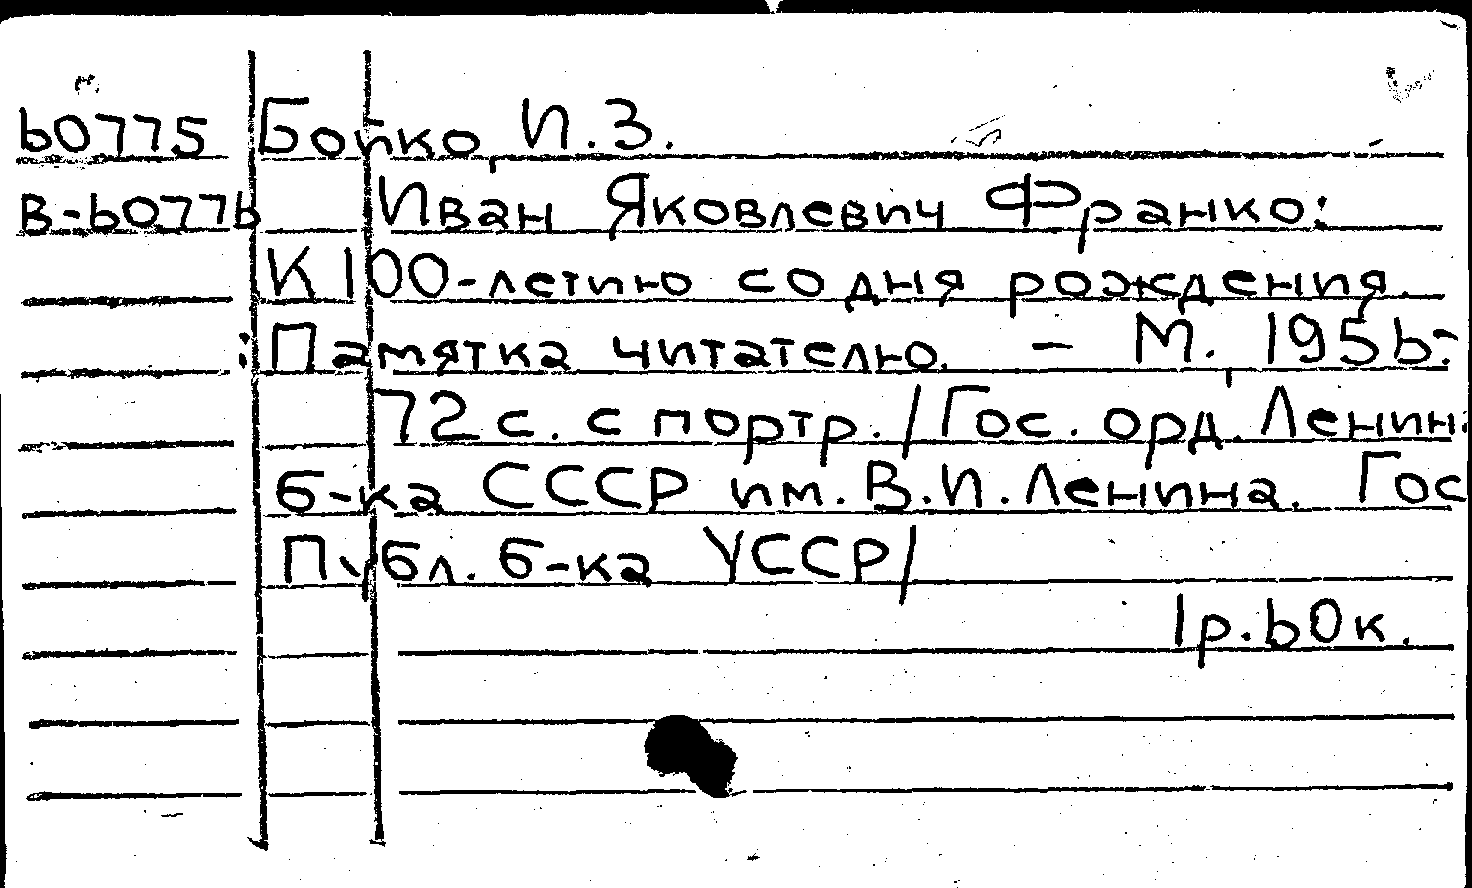 60775 Бойко, И.З.
В-60776 Иван Яковлевич Франко:
К 100-летию со дня рождения.
:Памятка читателю. – М. 1956.-
72 с. с портр./Гос. орд. Ленин.
б-ка СССР им. В.И. Ленина. Гос
Публ. б-ка УССР/
1р.60к.